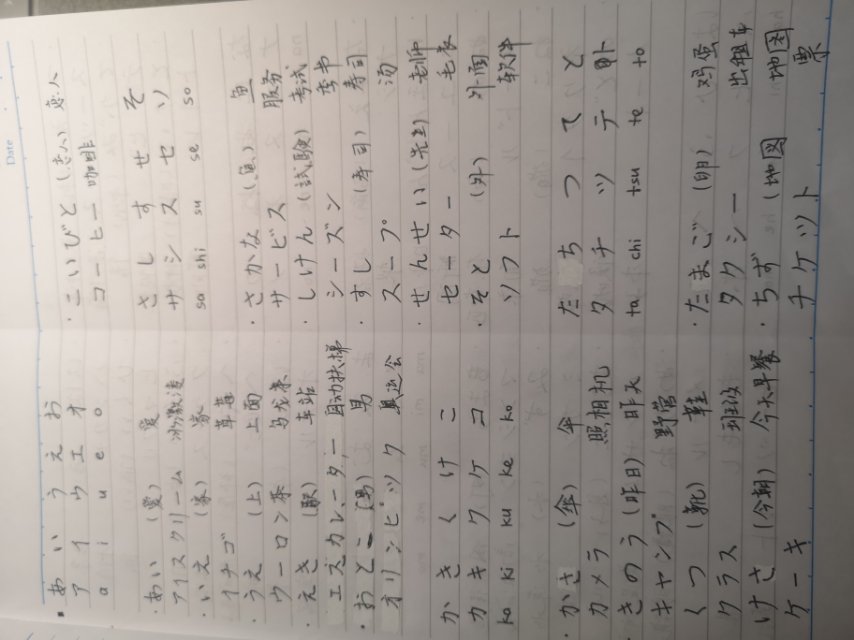 Date
あ い う え お
ア イ ウ エ オ
a i u e o
・あい (愛) 爱
アイスクリーム 冰激凌
・いえ (家) 家
イチゴ 草莓
・うえ (上) 上面
ウーロン茶 乌龙茶
・えき (駅) 车站
エスカレーター 自动扶梯
・おとこ (男) 男
オリンピック 奥运会
か き く け こ
カ キ ク ケ コ
ka ki ku ke ko
・かさ (傘) 伞
カメラ 照相机
・きのう (昨日) 昨天
キャンプ 野营
くつ (靴) 鞋
クラス 班级
けさ (今朝) 今天早餐
ケーキ
・こいびと (恋人) 恋人
コーヒー 咖啡
さ し す せ そ
サ シ ス セ ソ
sa shi su se so
・さかな (魚) 鱼
サービス 服务
・しけん (試験) 考试
シーズン 季节
・すし (寿司) 寿司
スープ 汤
・せんせい (先生) 老师
セーター 毛衣
・そと (外) 外面
ソフト 软件
た ち つ て と
タ チ ツ テ ト
ta chi tsu te to
・たまご (卵) 鸡蛋
タクシー 出租车
・ちず (地図) 地图
チケット 票